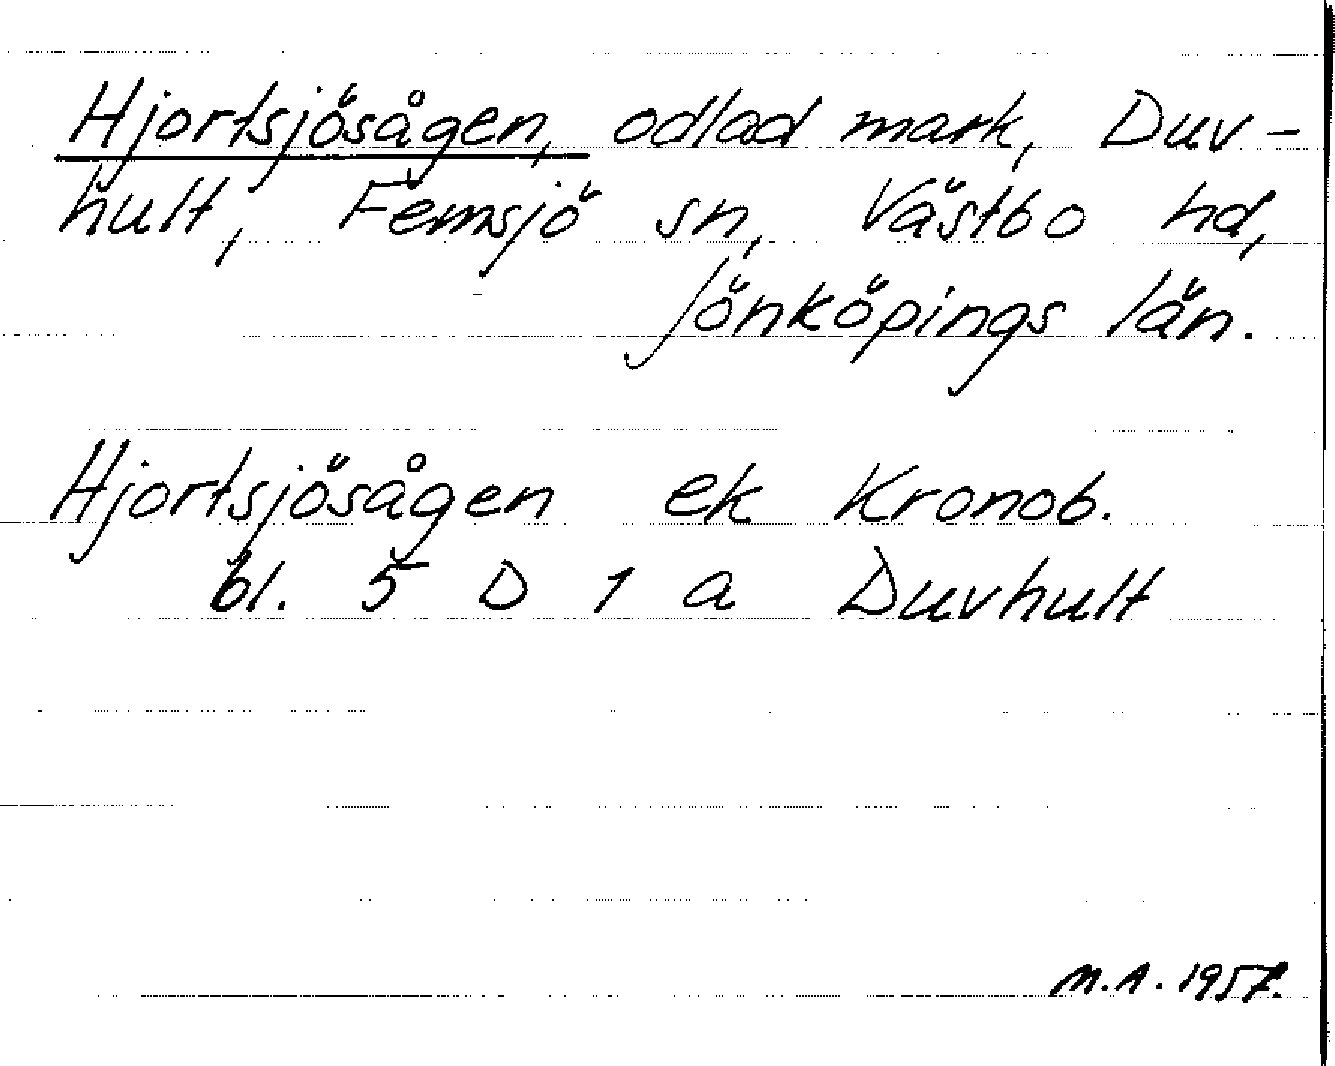 Hjortsjösågen, odlad mark, Duv-
hult, Femsjö sn, Västbo hd,
Jönköpings län.
Hjortsjösågen ek Kronob.
bl. 5 D 1 a Duvhult
M.A. 1957.